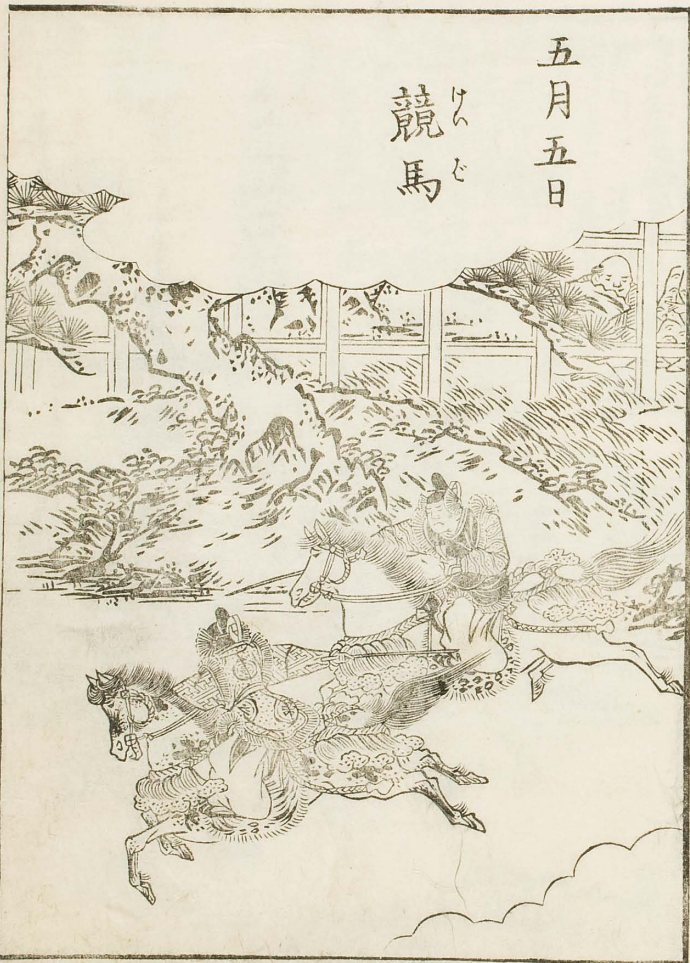 五月五日
競馬
けいば